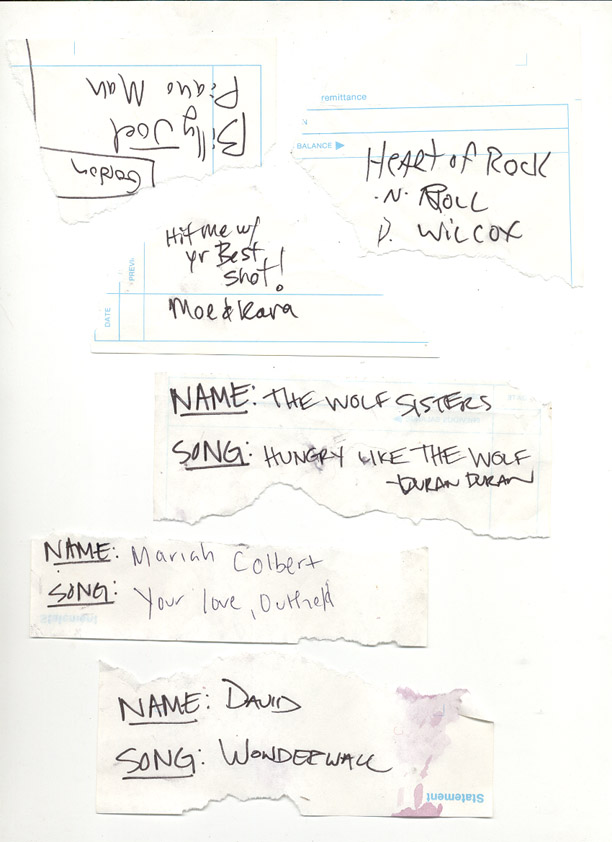 Billy Joel
Piano Man
Gordon
remittance
BALANCE ▶
Heart of Rock
·N· Roll
D. Wilcox
Hit me w/
yr Best
Shot!
Moe & Kara
PREVI
DATE
NAME: THE WOLF SISTERS
SONG: HUNGRY LIKE THE WOLF
-DURAN DURAN
NAME: Mariah Colbert
SONG: Your love, Outfield
Statement
NAME: DAVID
SONG: WONDERWALL
Statement